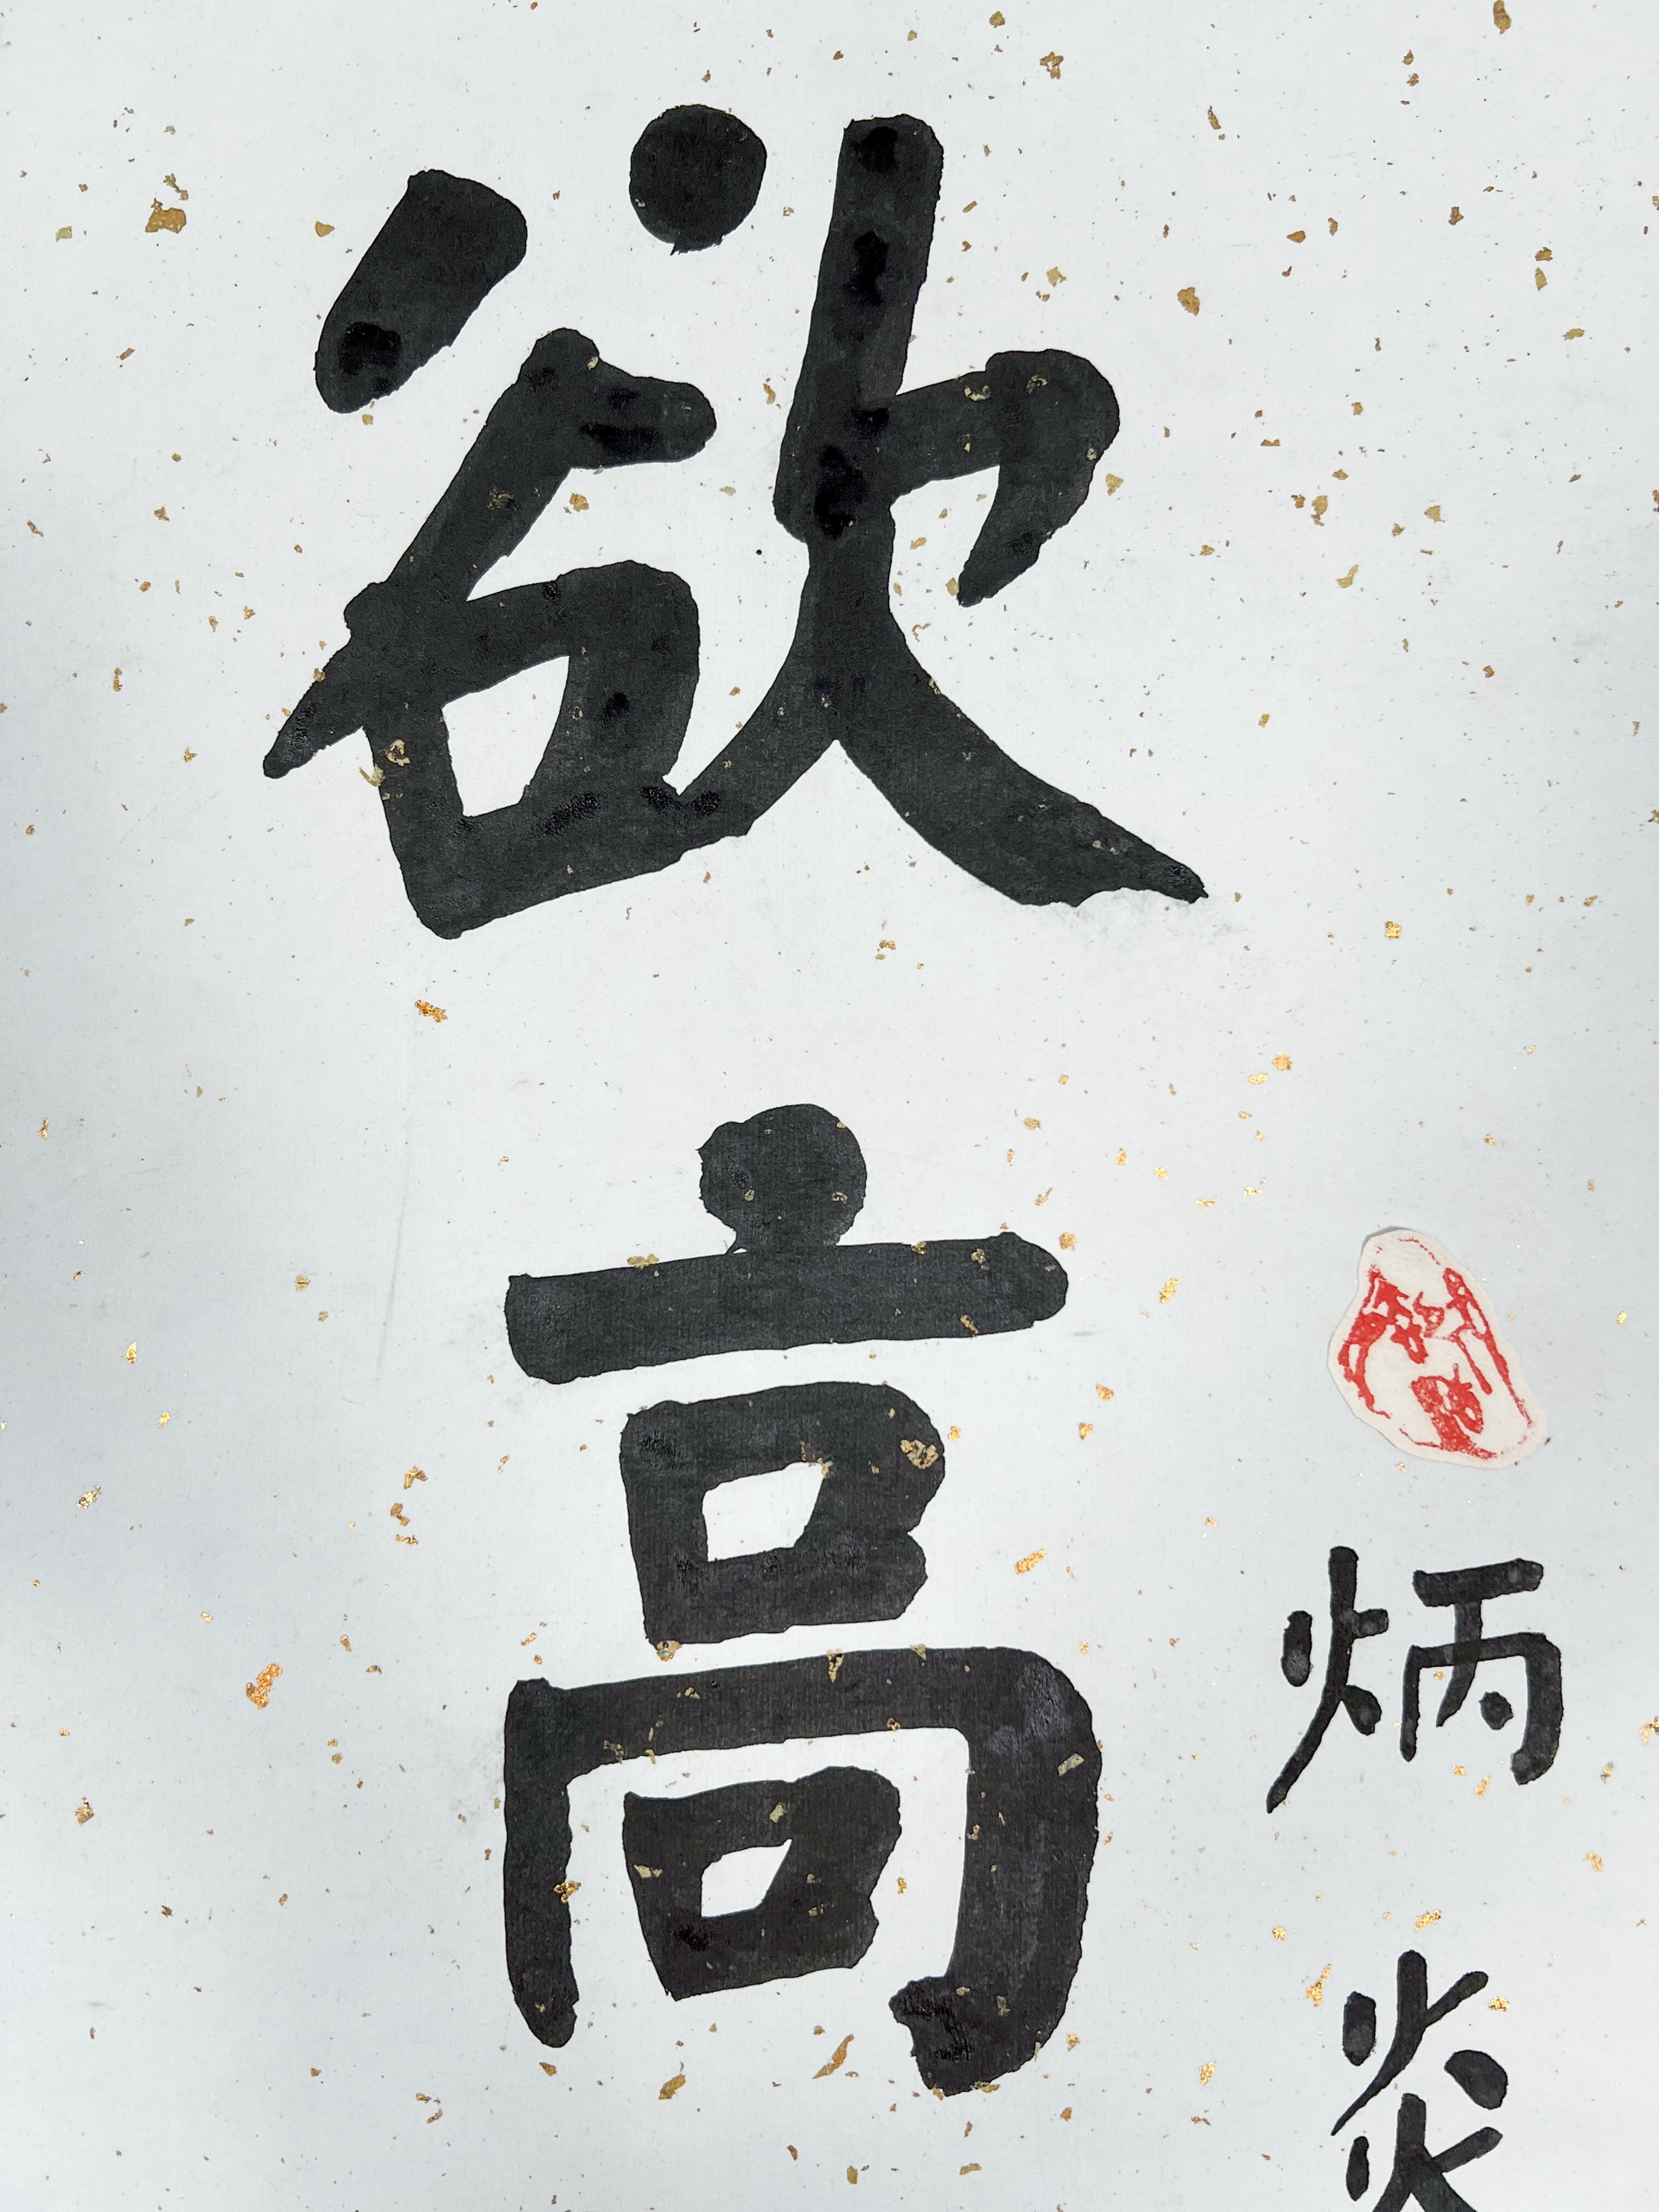 炳炎
欲高